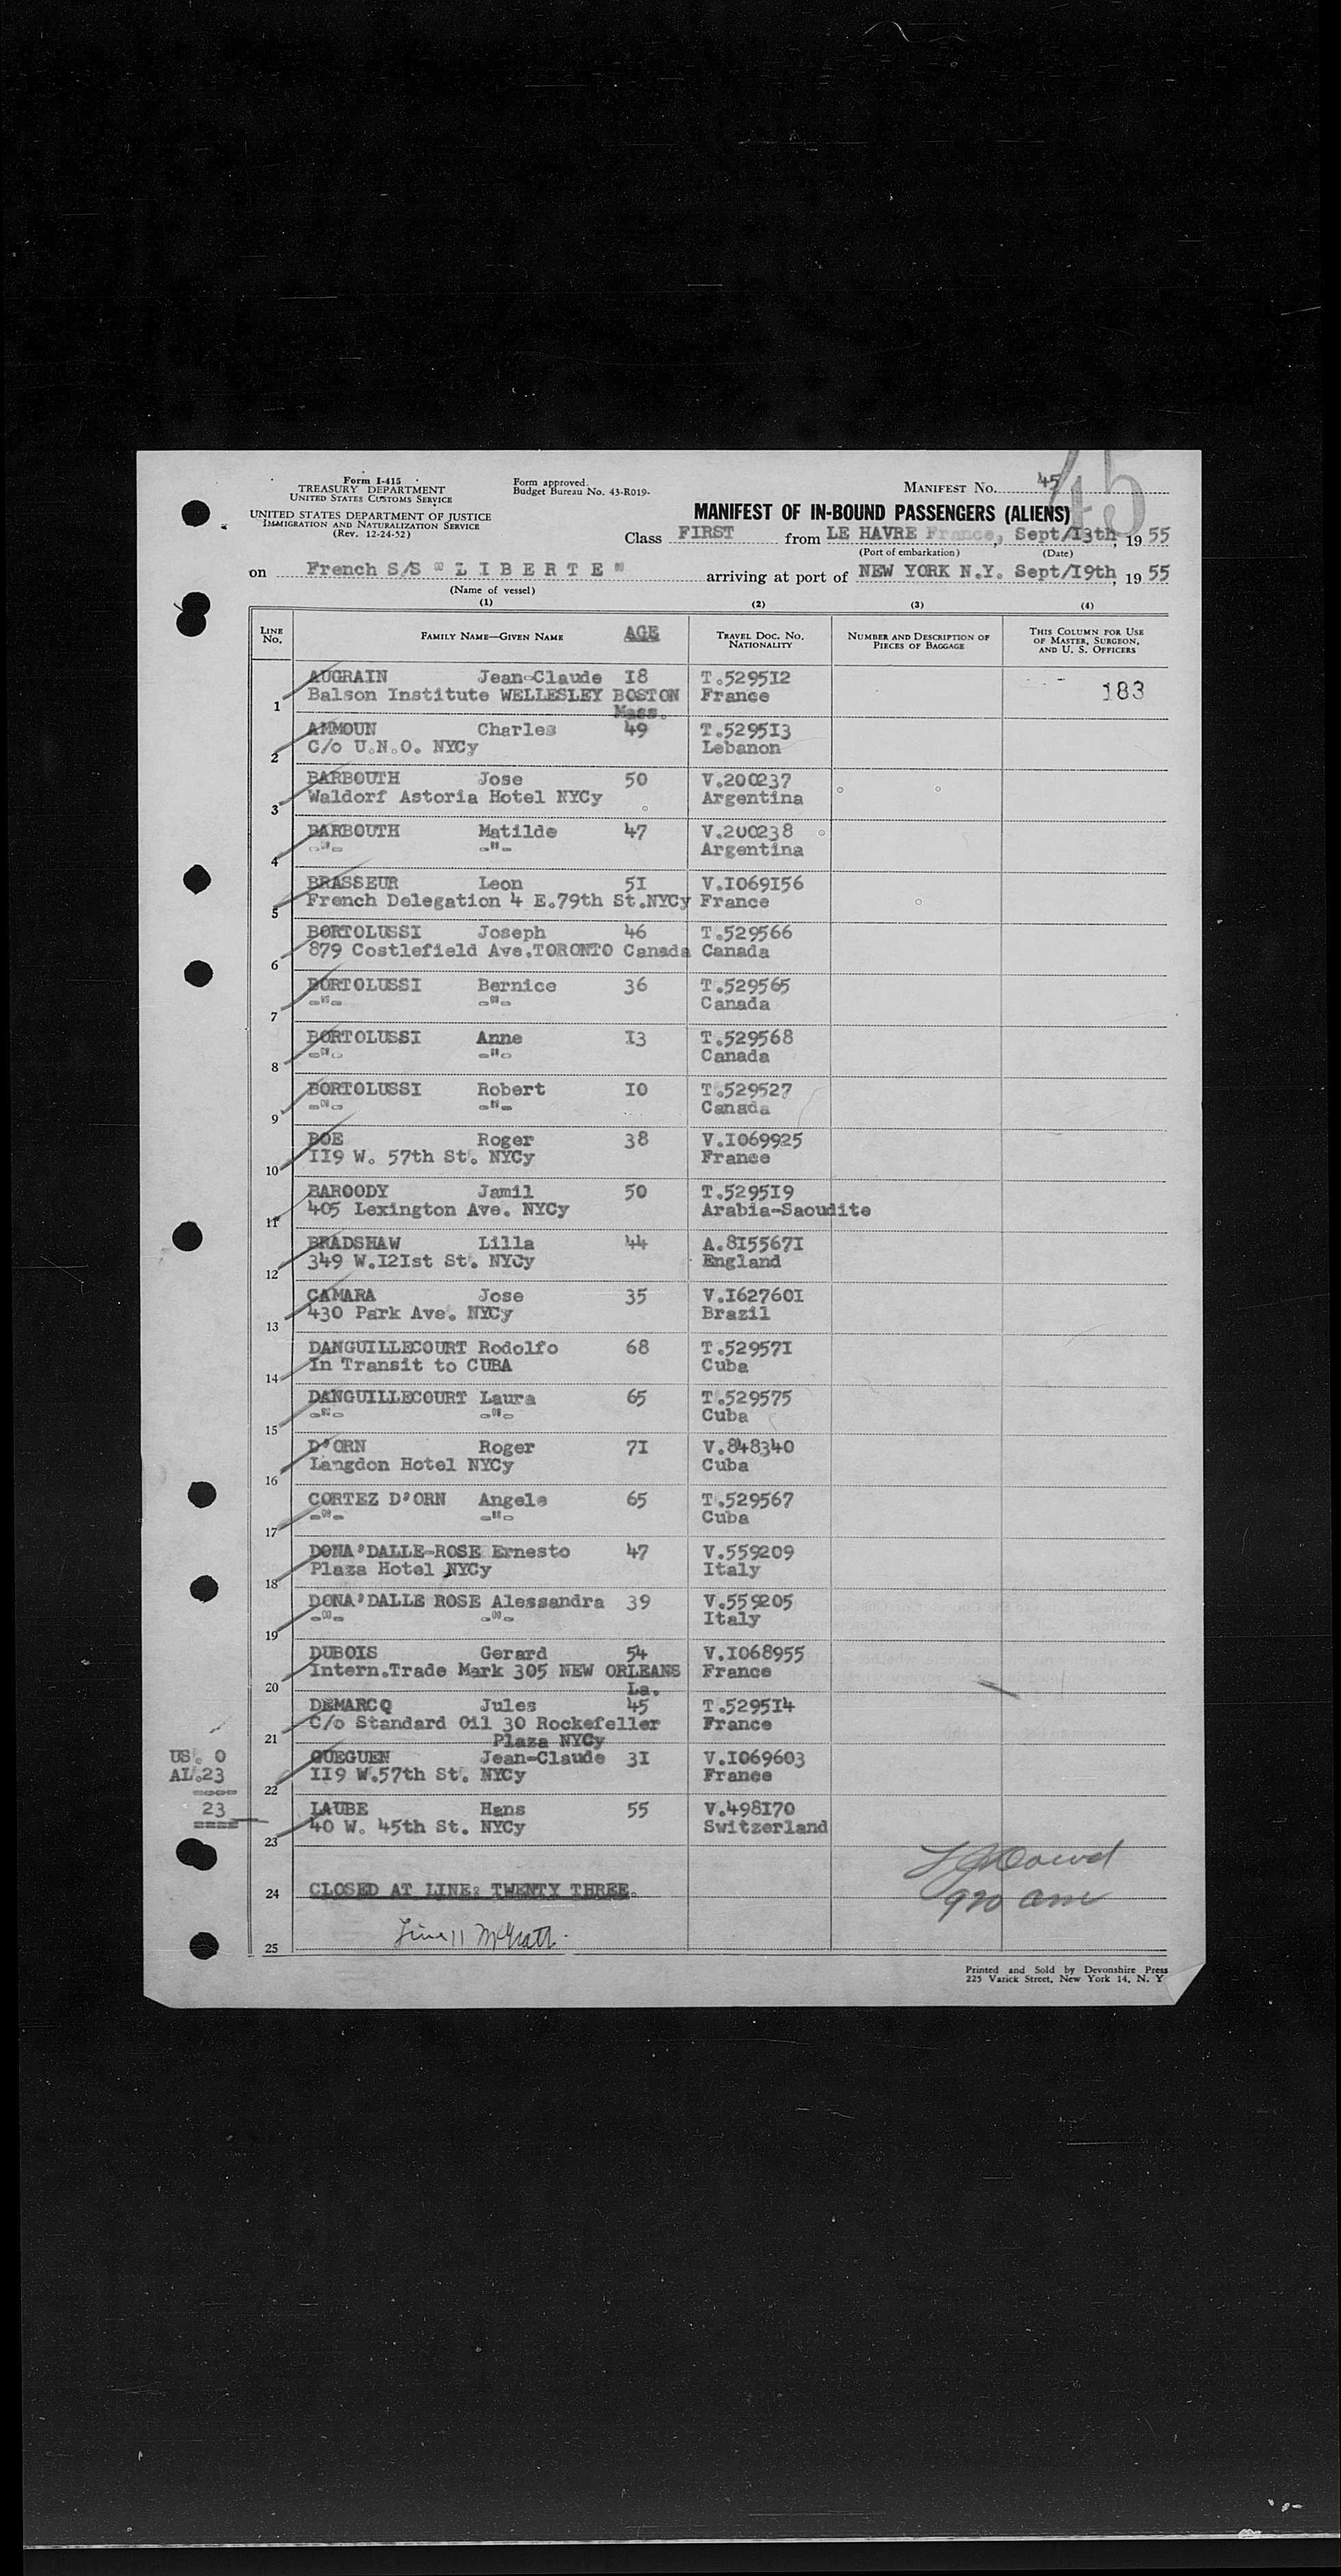 Form I-415
TREASURY DEPARTMENT
UNITED STATES CUSTOMS SERVICE
UNITED STATES DEPARTMENT OF JUSTICE
IMMIGRATION AND NATURALIZATION SERVICE
(Rev. 12-24-52)
Form approved.
Budget Bureau No. 43-R019-
MANIFEST NO. 45
45
MANIFEST OF IN-BOUND PASSENGERS (ALIENS)
Class FIRST from LE HAVRE France, Sept/I3th, 19 55
(Port of embarkation) (Date)
on French S/S " L I B E R T E " arriving at port of NEW YORK N.Y. Sept/I9th, 19 55
(Name of vessel)
(1) (2) (3) (4)
LINE NO. FAMILY NAME—GIVEN NAME AGE TRAVEL DOC. NO. NATIONALITY NUMBER AND DESCRIPTION OF PIECES OF BAGGAGE THIS COLUMN FOR USE OF MASTER, SURGEON, AND U. S. OFFICERS
AUGRAIN Jean-Claude I8 T.5295I2
1 Balson Institute WELLESLEY BOSTON France 183
Mass.
AMMOUN Charles 49 T.5295I3
2 C/o U.N.O. NYCy Lebanon
BARBOUTH Jose 50 V.200237
3 Waldorf Astoria Hotel NYCy Argentina
BARBOUTH Matilde 47 V.200238
4 -"- -"- Argentina
BRASSEUR Leon 5I V.I069I56
5 French Delegation 4 E.79th St.NYCy France
BORTOLUSSI Joseph 46 T.529566
6 879 Costlefield Ave.TORONTO Canada Canada
BORTOLUSSI Bernice 36 T.529565
7 -"- -"- Canada
BORTOLUSSI Anne I3 T.529568
8 -"- -"- Canada
BORTOLUSSI Robert I0 T.529527
9 -"- -"- Canada
BOE Roger 38 V.I069925
10 II9 W. 57th St. NYCy France
BAROODY Jamil 50 T.5295I9
11 405 Lexington Ave. NYCy Arabia-Saoudite
BRADSHAW Lilla 44 A.8I5567I
12 349 W.I2Ist St. NYCy England
CAMARA Jose 35 V.I62760I
13 430 Park Ave. NYCy Brazil
DANGUILLECOURT Rodolfo 68 T.52957I
14 In Transit to CUBA Cuba
DANGUILLECOURT Laura 65 T.529575
15 -"- -"- Cuba
D'ORN Roger 7I V.848340
16 Langdon Hotel NYCy Cuba
CORTEZ D'ORN Angele 65 T.529567
17 -"- -"- Cuba
DONA'DALLE-ROSE Ernesto 47 V.559209
18 Plaza Hotel NYCy Italy
DONA'DALLE ROSE Alessandra 39 V.559205
19 -"- -"- Italy
DUBOIS Gerard 54 V.I068955
20 Intern.Trade Mark 305 NEW ORLEANS France
La.
DEMARCQ Jules 45 T.5295I4
21 C/o Standard Oil 30 Rockefeller France
Plaza NYCy
GUEGUEN Jean-Claude 3I V.I069603
22 II9 W.57th St. NYCy France
US. 0
AL.23
====
23
====
LAUBE Hans 55 V.498I70
23 40 W. 45th St. NYCy Switzerland
24 CLOSED AT LINE: TWENTY THREE.
920 am
25 Line 11 McGrath
Printed and Sold by Devonshire Press
225 Varick Street, New York 14, N. Y